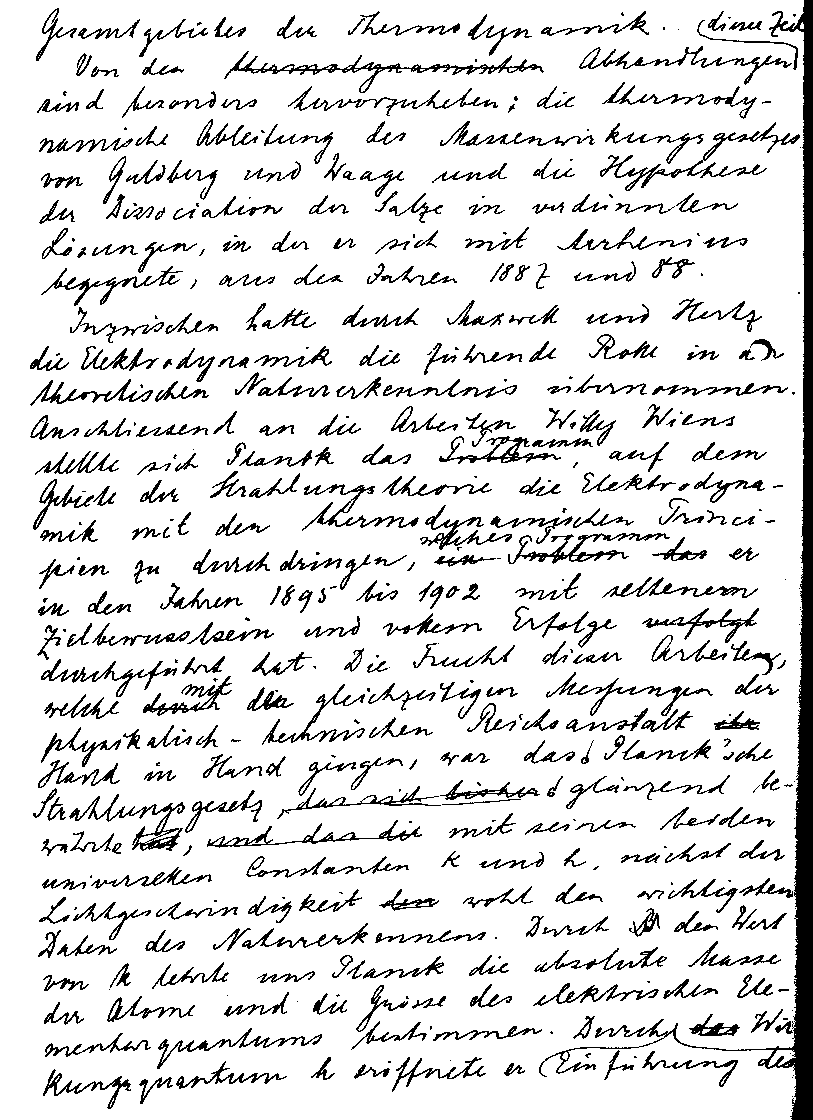 Gesamtgebietes der Thermodynamik. (dieser Zeit
Von den thermodynamischen Abhandlungen)
sind besonders hervorzuheben; die thermody-
namische Ableitung des Massenwirkungsgesetzes
von Guldberg und Waage und die Hypothese
der Dissociation der Salze in verdünnten
Lösungen, in der er sich mit Arrhenius
begegnete, aus den Jahren 1887 und 88.
Inzwischen hatte durch Maxwell und Hertz
die Elektrodynamik die führende Rolle in der
theoretischen Naturerkenntnis übernommen.
Anschliessend an die Arbeiten Willy Wiens
Programm
stellte sich Planck das Problem, auf dem
Gebiete der Strahlungstheorie die Elektrodyna-
mik mit den thermodynamischen Princi-
welches Programm
pien zu durchdringen, ein Problem das er
in den Jahren 1895 bis 1902 mit seltenem
Zielbewusstsein und vollem Erfolge verfolgt
durchgeführt hat. Die Frucht dieser Arbeiten,
mit
welche durch den gleichzeitigen Messungen der
physikalisch-technischen Reichsanstalt ihr
Hand in Hand gingen, war das Planck'sche
Strahlungsgesetz, das sich bisher glänzend be-
währte hat, und das die mit seinen beiden
universellen Constanten k und h, nächst der
Lichtgeschwindigkeit den wohl den wichtigsten
Daten des Naturerkennens. Durch den Wert
von k lehrte uns Planck die absolute Masse
der Atome und die Grösse des elektrischen Ele-
mentarquantums bestimmen. Durch das Wir
kungsquantum h eröffnete er (Einführung des